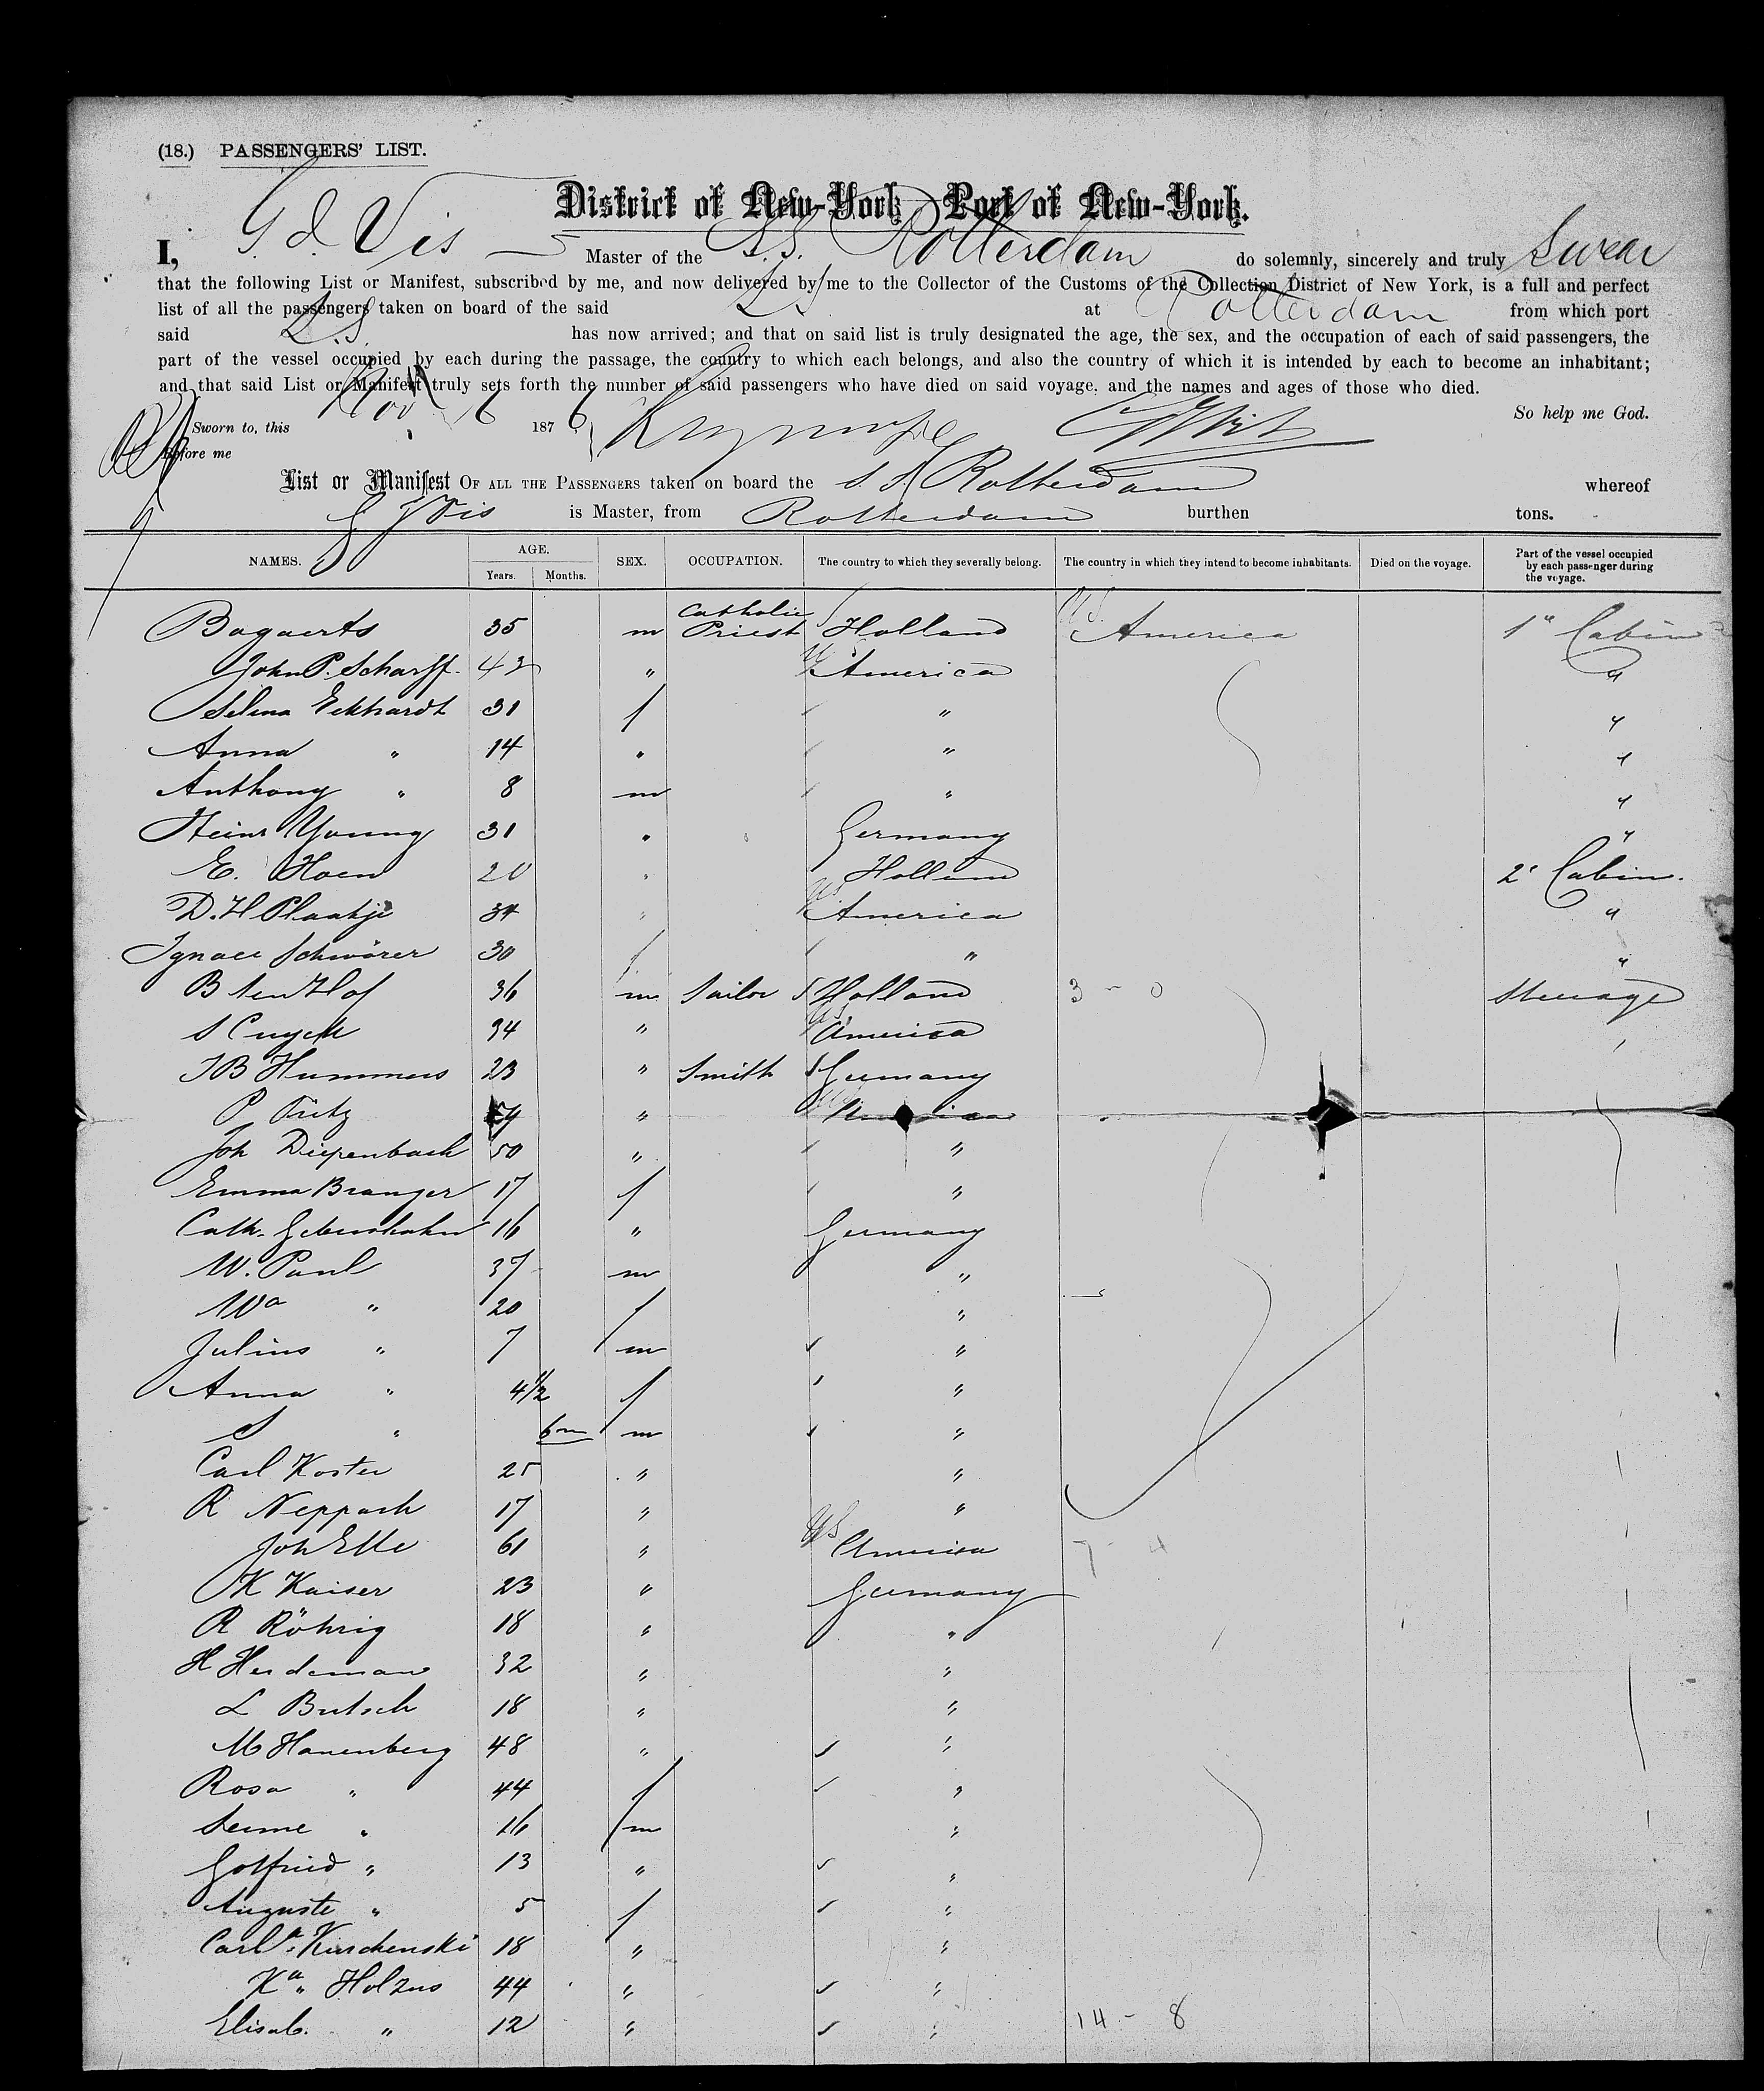 (18.) PASSENGERS' LIST.
District of New-York Port of New-York.
I, G. J. Vis Master of the S.S. Rotterdam do solemnly, sincerely and truly Swear
that the following List or Manifest, subscribed by me, and now delivered by me to the Collector of the Customs of the Collection District of New York, is a full and perfect
list of all the passengers taken on board of the said S.S. at Rotterdam from which port
said S.S. has now arrived; and that on said list is truly designated the age, the sex, and the occupation of each of said passengers, the
part of the vessel occupied by each during the passage, the country to which each belongs, and also the country of which it is intended by each to become an inhabitant;
and that said List or Manifest truly sets forth the number of said passengers who have died on said voyage, and the names and ages of those who died.
So help me God.
Sworn to, this Nov 16 1876
Before me
List or Manifest OF ALL THE PASSENGERS taken on board the S.S. Rotterdam whereof
G J Vis is Master, from Rotterdam burthen tons.
NAMES. AGE. Years. Months. SEX. OCCUPATION. The country to which they severally belong. The country in which they intend to become inhabitants. Died on the voyage. Part of the vessel occupied by each passenger during the voyage.
Bogaerts 35 m Catholic Priest Holland US America 1" Cabin
John P. Scharff. 43 " US America "
Selina Eckhardt 31 f " "
Anna " 14 " " "
Anthony " 8 m " "
Heinr Young 31 " Germany "
E. Hoen 20 " Holland 2" Cabin.
D. H Plaatje 34 " US America "
Ignace Schwörer 30 f " "
B ten Hof 36 m Sailor Holland 3 - 0 Steerage
S Cuyck 34 " US America
J B Hummers 23 " Smith Germany
P Fritz " US America
Joh Diepenbach 50 " "
Emma Branger 17 f "
Cath. 16 " Germany
W. Paul 37 m "
Wa " 20 f "
Julius " 7 m "
Anna " 4 1/2 f "
S " 6m m "
Carl Koster 25 " "
R Neppach 17 " "
Joh Elle 61 " US America 7 - 4
K Kaiser 23 " Germany
R Röhrig 18 " "
H Heideman 32 " "
L Butsch 18 " "
M Hanenberg 48 " "
Rosa " 44 f "
" 16 m "
Gotfried " 13 " "
Auguste " 5 f "
Carla Kirschenski 18 " "
Ka Holzus 44 " "
Elisab. " 12 " " 14 - 8